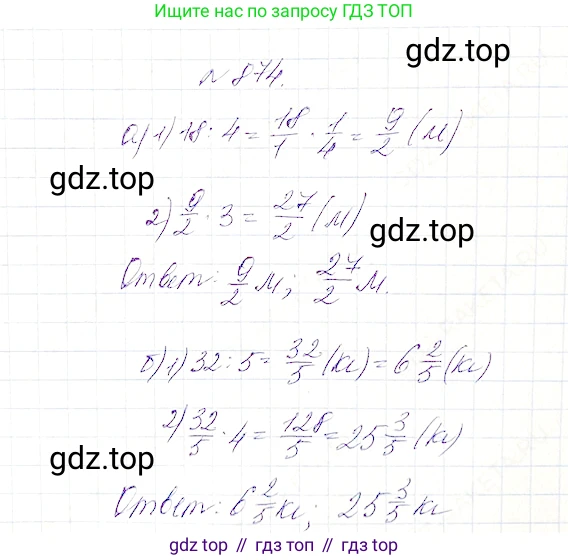 Ищите нас по запросу ГДЗ ТОП
gdz.top
№ 874.
а) 1) 18 : 4 = 18/1 · 1/4 = 9/2 (м)
gdz.top
2) 9/2 · 3 = 27/2 (м)
gdz.top
Ответ: 9/2 м; 27/2 м.
б) 1) 32 : 5 = 32/5 (кг) = 6 2/5 (кг)
2) 32/5 · 4 = 128/5 = 25 3/5 (кг)
gdz.top
Ответ: 6 2/5 кг; 25 3/5 кг
gdz.top
gdz.top // гдз топ // gdz.top